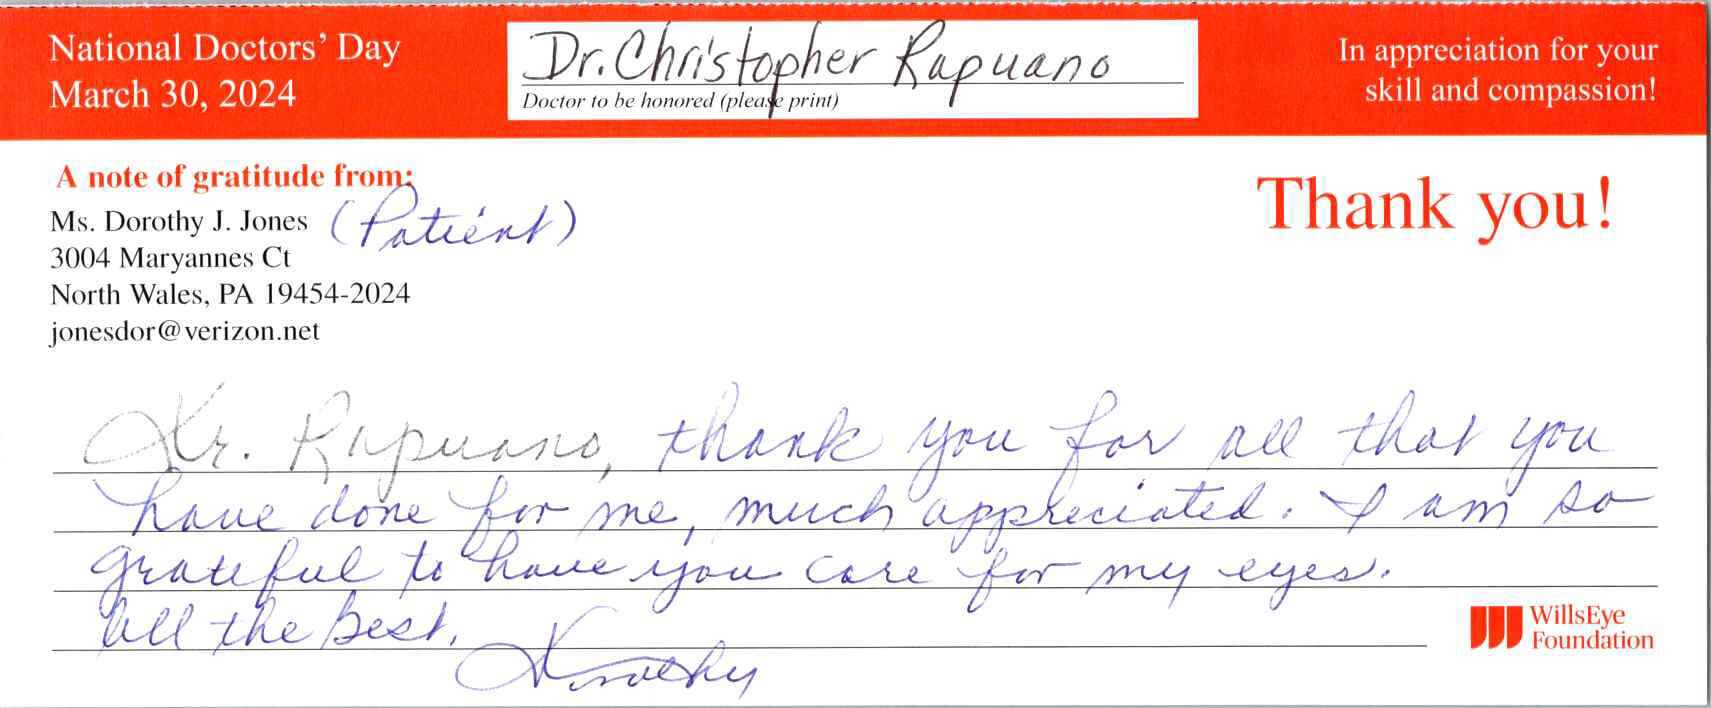 National Doctors' Day
March 30, 2024
Dr. Christopher Rapuano
Doctor to be honored (please print)
In appreciation for your
skill and compassion!
A note of gratitude from:
Ms. Dorothy J. Jones (Patient)
3004 Maryannes Ct
North Wales, PA 19454-2024
jonesdor@verizon.net
Thank you!
Dr. Rapuano, thank you for all that you
have done for me, much appreciated. I am so
grateful to have you care for my eyes.
All the best,
Dorothy
WillsEye
Foundation